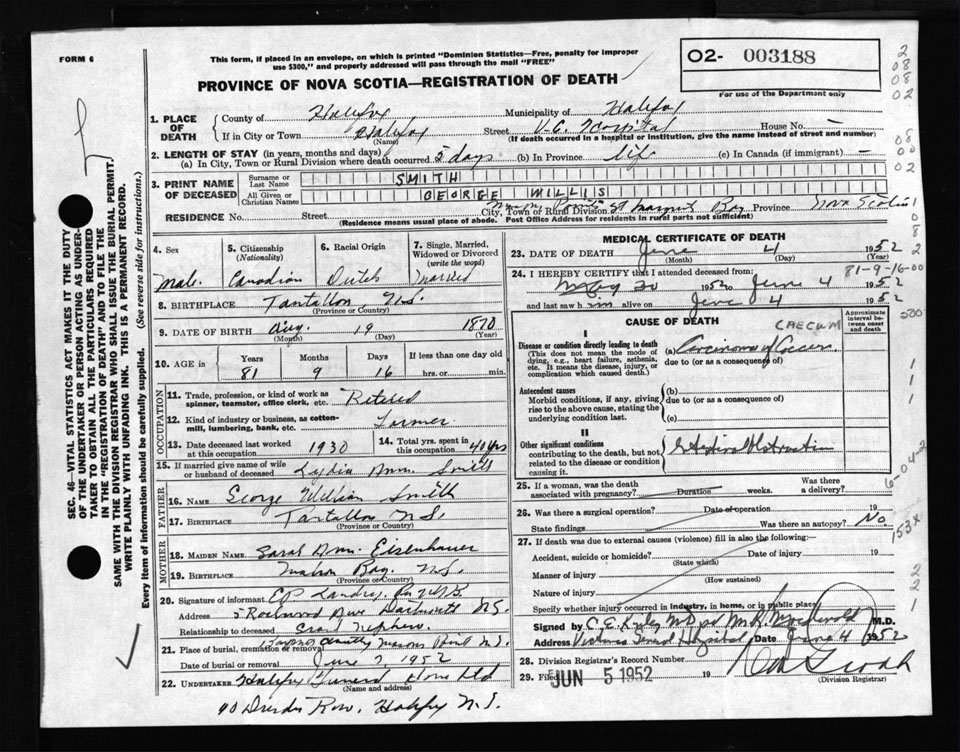 FORM 6
This form, if placed in an envelope, on which is printed "Dominion Statistics—Free, penalty for improper
use $300," and properly addressed will pass through the mail "FREE"
PROVINCE OF NOVA SCOTIA—REGISTRATION OF DEATH
O2- 003188
For use of the Department only
1. PLACE OF DEATH
County of Halifax Municipality of Halifax
If in City or Town Halifax Street V.G. Hospital House No. —
(Name) (If death occurred in a hospital or institution, give the name instead of street and number)
2. LENGTH OF STAY (in years, months and days)
(a) In City, Town or Rural Division where death occurred 5 days (b) In Province life (c) In Canada (if immigrant) —
3. PRINT NAME OF DECEASED
Surname or Last Name SMITH
All Given or Christian Names GEORGE WILLIS
RESIDENCE No. Street City, Town or Rural Division Masons Point St Margrets Bay Province Nova Scotia
(Residence means usual place of abode. Post Office Address for residents in rural parts not sufficient)
4. Sex Male.
5. Citizenship (Nationality) Canadian
6. Racial Origin Dutch
7. Single, Married, Widowed or Divorced (write the word) Married
8. BIRTHPLACE Tantallon N.S.
(Province or Country)
9. DATE OF BIRTH Aug. 19 1870
(Month) (Day) (Year)
10. AGE in Years Months Days If less than one day old
81 9 16 hrs. or min.
OCCUPATION
11. Trade, profession, or kind of work as spinner, teamster, office clerk, etc. Retired
12. Kind of industry or business, as cotton-mill, lumbering, bank, etc. Farmer
13. Date deceased last worked at this occupation 1930
14. Total yrs. spent in this occupation 40 yrs
15. If married give name of wife or husband of deceased Lydia Ann. Smith
FATHER
16. NAME George William Smith
17. BIRTHPLACE Tantallon N.S.
(Province or Country)
MOTHER
18. MAIDEN NAME Sarah Ann. Eisenhauer
19. BIRTHPLACE Mahon Bay. N.S.
(Province or Country)
20. Signature of informant
Address 5 Dartmouth N.S.
Relationship to deceased Grand Nephew.
21. Place of burial, cremation or removal Masons Point N.S.
Date of burial or removal June 7 1952
22. UNDERTAKER Halifax Funeral Home Ltd
(Name and address)
90 Row. Halifax N.S.
MEDICAL CERTIFICATE OF DEATH
23. DATE OF DEATH June 4 1952
(Month) (Day)
81-9-16-00
24. I HEREBY CERTIFY that I attended deceased from:
May 30 1952 to June 4 1952
and last saw him alive on June 4 1952
I
CAUSE OF DEATH
Approximate interval between onset and death
CAECUM
Disease or condition directly leading to death (a) Carcinoma of Cecum.
(This does not mean the mode of dying, e.g., heart failure, asthenia, etc. It means the disease, injury, or complication which caused death.)
due to (or as a consequence of)
Antecedent causes (b)
Morbid conditions, if any, giving rise to the above cause, stating the underlying condition last.
due to (or as a consequence of)
(c)
II
Other significant conditions
contributing to the death, but not related to the disease or condition causing it.
Intestinal obstruction
25. If a woman, was the death associated with pregnancy? Duration weeks. Was there a delivery?
26. Was there a surgical operation? Date of operation 19
State findings Was there an autopsy? No
27. If death was due to external causes (violence) fill in also the following:
Accident, suicide or homicide? Date of injury 19
(State which)
Manner of injury
(How sustained)
Nature of injury
Specify whether injury occurred in industry, in home, or in public place
Signed by C.E. M.D.
Address Victoria General Hospital Date June 4 1952
28. Division Registrar's Record Number
29. Filed JUN 5 1952 19
(Division Registrar)
SEC. 46—VITAL STATISTICS ACT MAKES IT THE DUTY
OF THE UNDERTAKER OR PERSON ACTING AS UNDER-
TAKER TO OBTAIN ALL THE PARTICULARS REQUIRED
IN THE "REGISTRATION OF DEATH" AND TO FILE THE
SAME WITH THE DIVISION REGISTRAR WHO SHALL ISSUE THE BURIAL PERMIT.
WRITE PLAINLY WITH UNFADING INK. THIS IS A PERMANENT RECORD.
Every item of information should be carefully supplied. (See reverse side for instructions.)